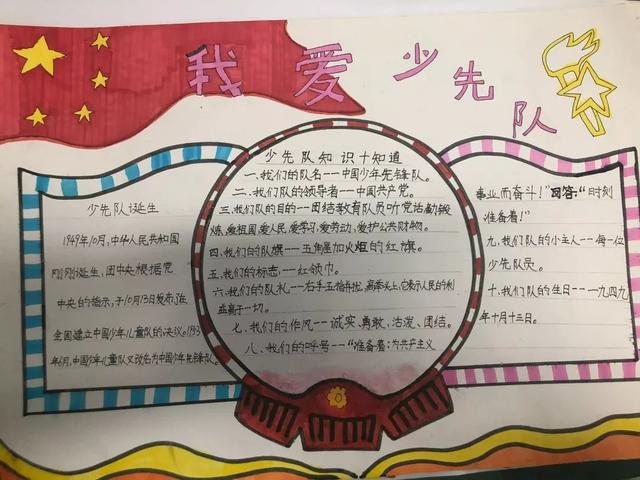 我爱少先队
少先队诞生
1949年10月,中华人民共和国
刚刚诞生,团中央根据党
中央的指示,于10月13日发布,在
全国建立中国少年儿童队的决议。1953
年6月,中国少年儿童队又改名为中国少年先锋队。
少先队知识十知道
一、我们的队名——中国少年先锋队。
二、我们队的领导者——中国共产党。
三、我们队的目的——团结教育队员听党话,勤锻
炼,爱祖国,爱人民,爱学习,爱劳动,爱护公共财物。
四、我们的队旗——五角星加火炬的红旗。
五、我们的标志——红领巾。
六、我们的队礼——右手五指并拢,高举头上,它表示人民的利
益高于一切。
七、我们的作风——诚实、勇敢、活泼、团结。
八、我们的呼号——“准备着:为共产主义
事业而奋斗!”回答:“时刻
准备着!”
九、我们队的小主人——每一位
少先队员。
十、我们队的生日——一九四九
年十月十三日。